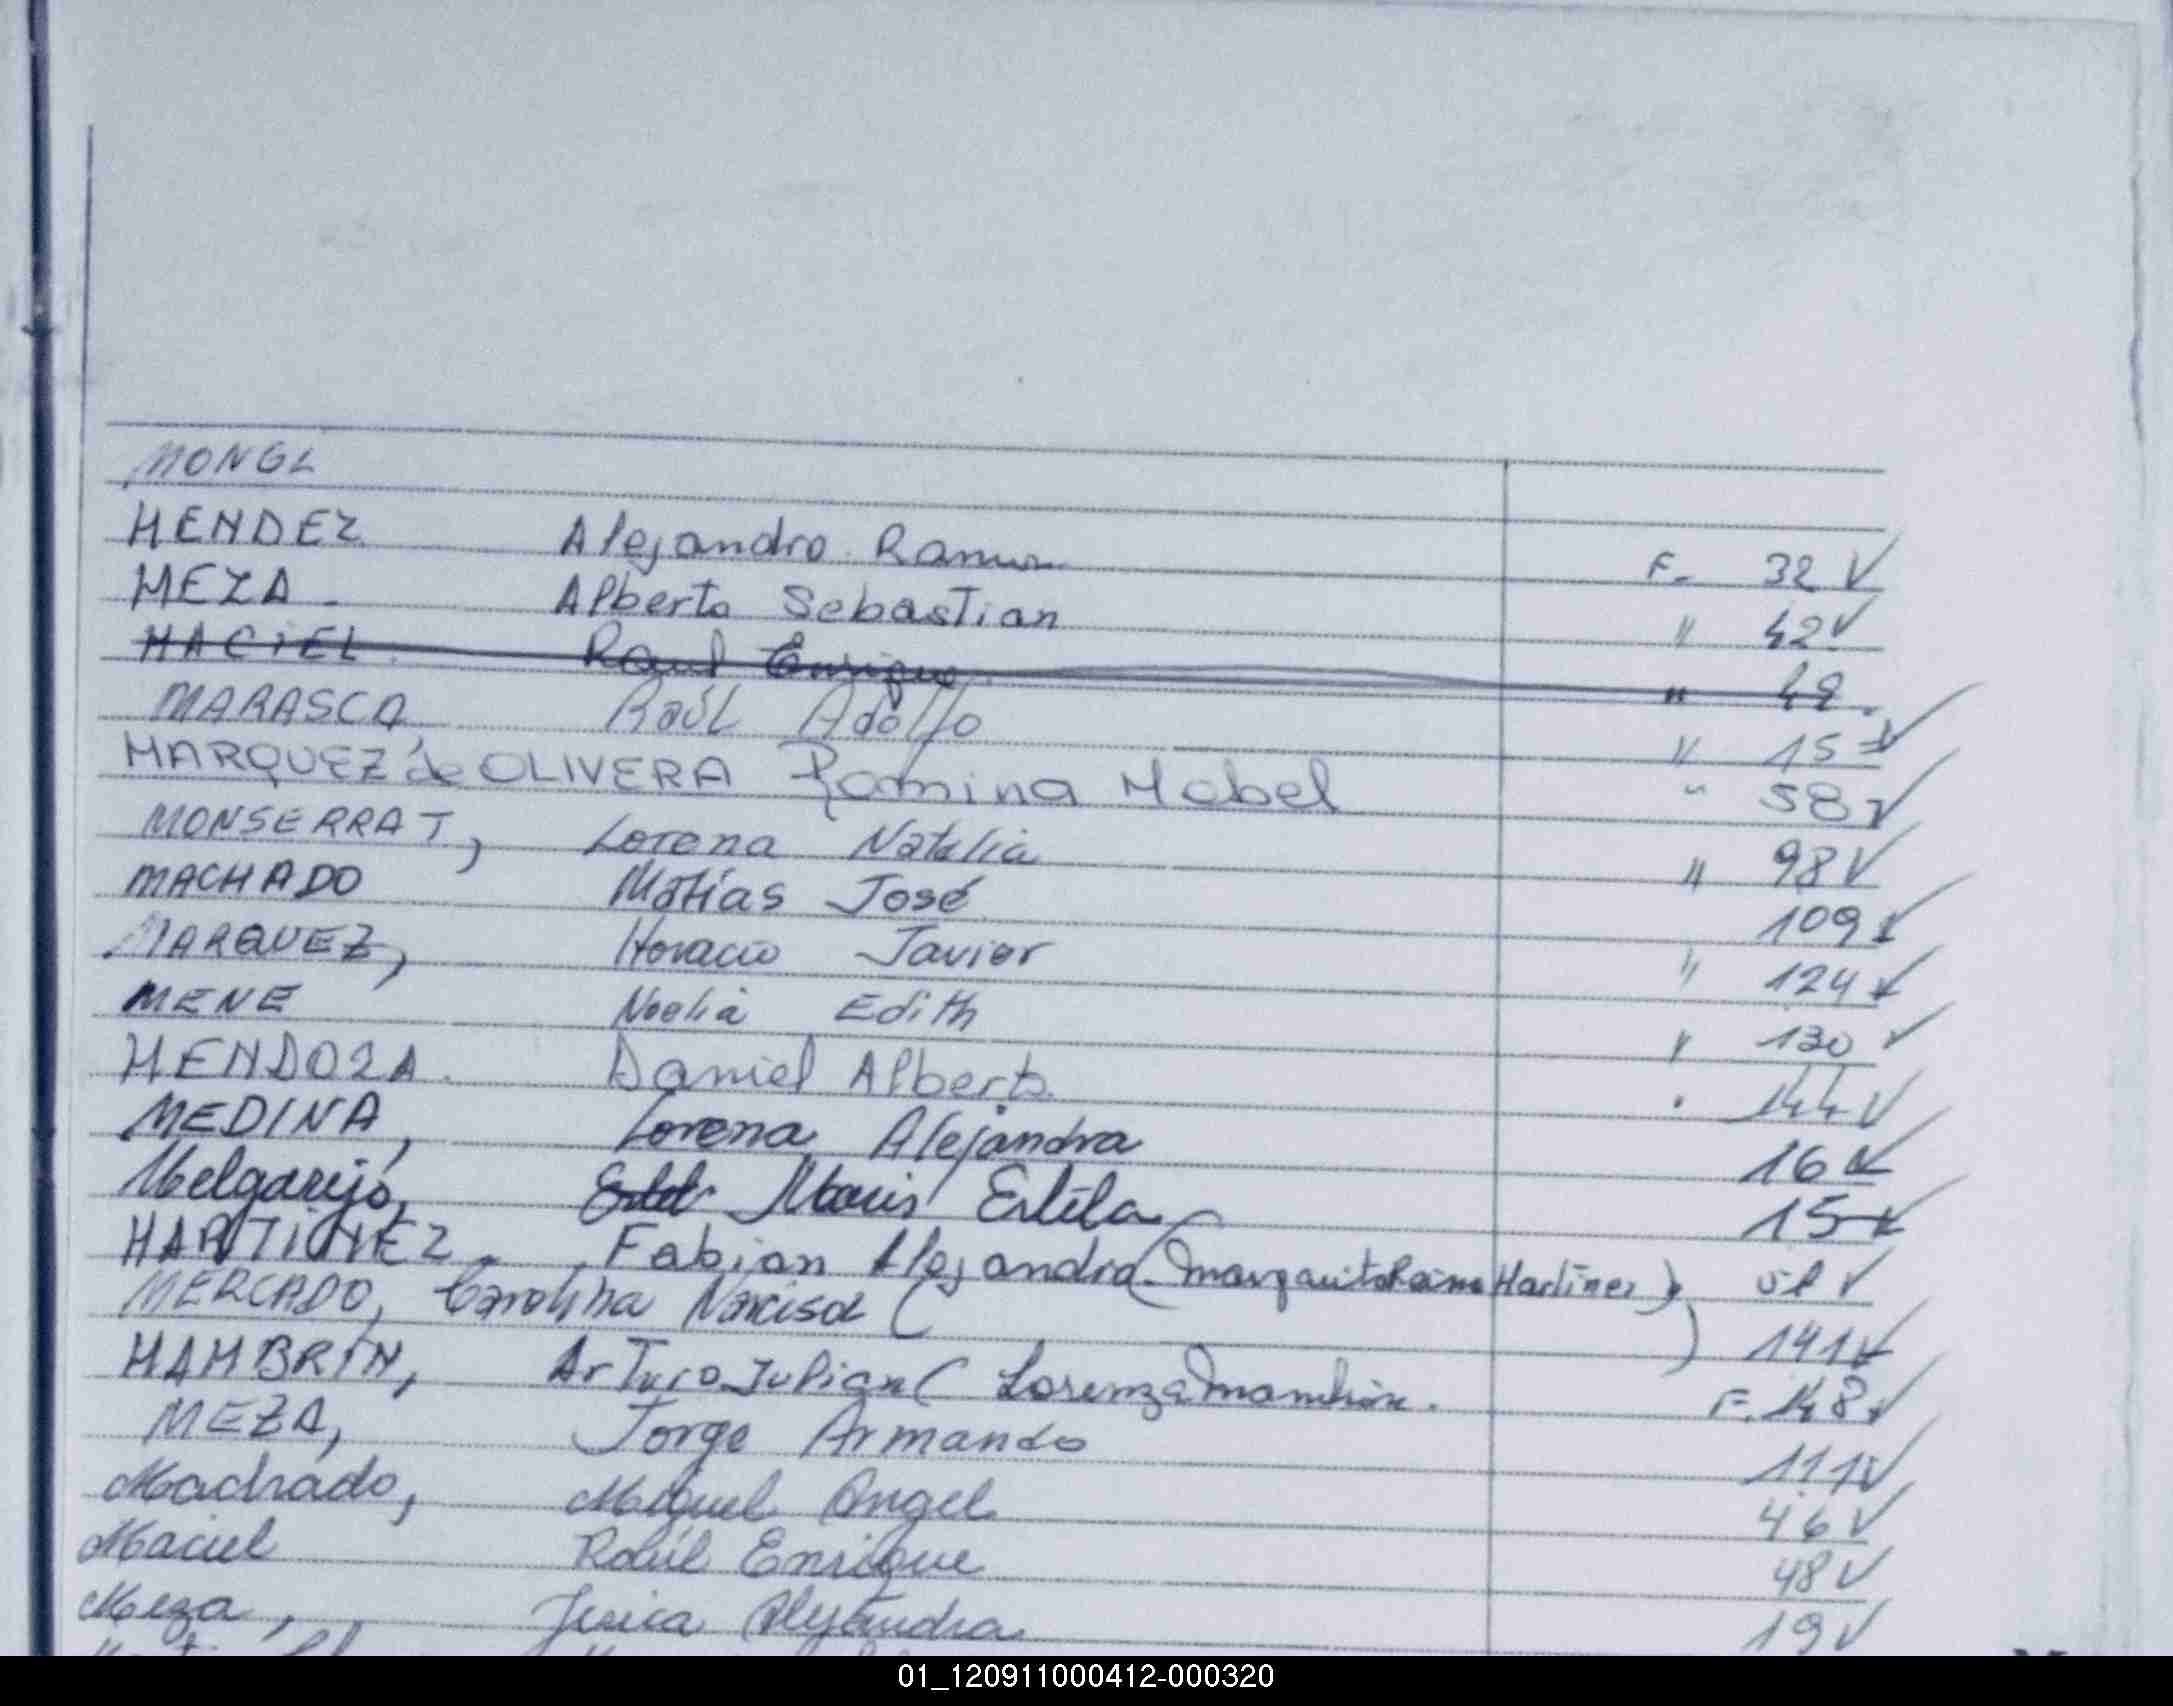 MONGL
MENDEZ Alejandro Ramon F. 32 ✓
MEZA Alberto Sebastian " 42 ✓
MACIEL Raul Enrique " 48
MARASCA Raúl Adolfo " 15 ✓
MARQUEZ de OLIVERA Romina Mabel " 58 ✓
MONSERRAT, Lorena Natalia " 98 ✓
MACHADO Matías José 109 ✓
MARQUEZ, Horacio Javier " 124 ✓
MENE Noelia Edith " 130 ✓
MENDOZA. Daniel Alberto. " 144 ✓
MEDINA, Lorena Alejandra 16 ✓
Melgarejo, Maris Estela 15 ✓
MARTINEZ. Fabian Alejandro (Margarita Martinez) ✓
MERCADO, Carolina Narcisa ( ) 141 ✓
MAMBRIN, Arturo Julian ( Lorenza Mambrin. F. 148 ✓
MEZA, Jorge Armando 111 ✓
Machado, Miguel Angel 46 ✓
Maciel Raúl Enrique 48 ✓
Meza, Jesica Alejandra 19 ✓
01_120911000412-000320